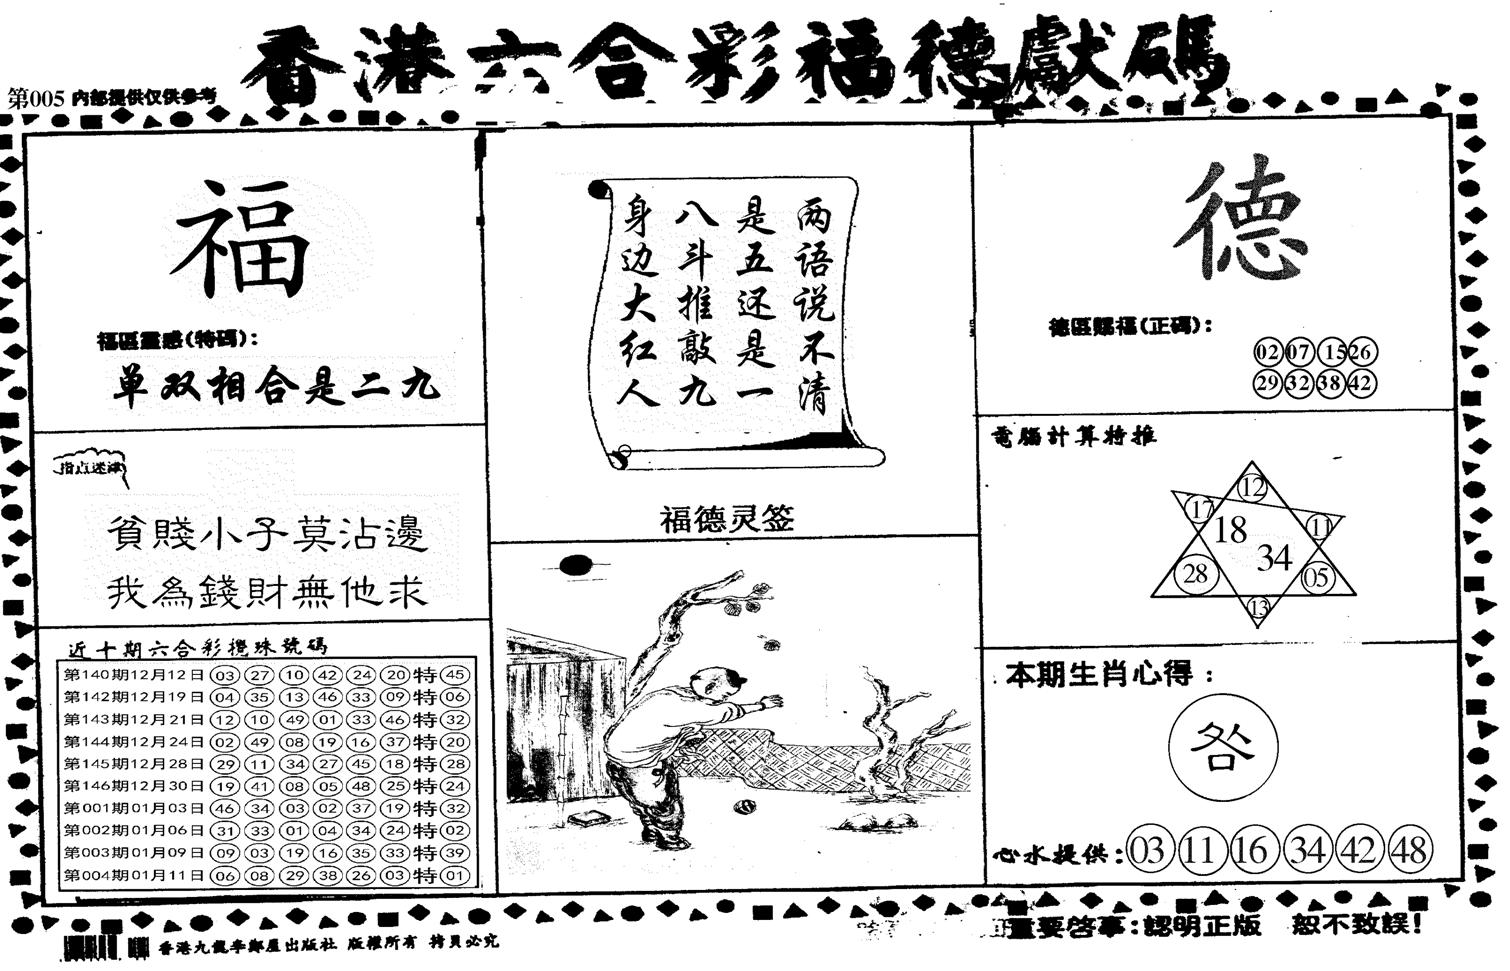 香港六合彩福德獻碼
第005 內部提供仅供参考
福
福區靈感(特碼):
单双相合是二九
指点迷津
貧賤小子莫沾邊
我為錢財無他求
近十期六合彩攪珠號碼
第140期12月12日 03 27 10 42 24 20 特 45
第142期12月19日 04 35 13 46 33 09 特 06
第143期12月21日 12 10 49 01 33 46 特 32
第144期12月24日 02 49 08 19 16 37 特 20
第145期12月28日 29 11 34 27 45 18 特 28
第146期12月30日 19 41 08 05 48 25 特 24
第001期01月03日 46 34 03 02 37 19 特 32
第002期01月06日 31 33 01 04 34 24 特 02
第003期01月09日 09 03 19 16 35 33 特 39
第004期01月11日 06 08 29 38 26 03 特 01
两语说不清
是五还是一
八斗推敲九
身边大红人
福德灵签
德
德區賜福(正碼):
02 07 15 26
29 32 38 42
電腦計算特推
12
17
11
18
34
28
05
13
本期生肖心得:
明
心水提供: 03 11 16 34 42 48
重要啓事:認明正版 恕不致誤!
香港九龍李鄭屋出版社 版權所有 拷貝必究